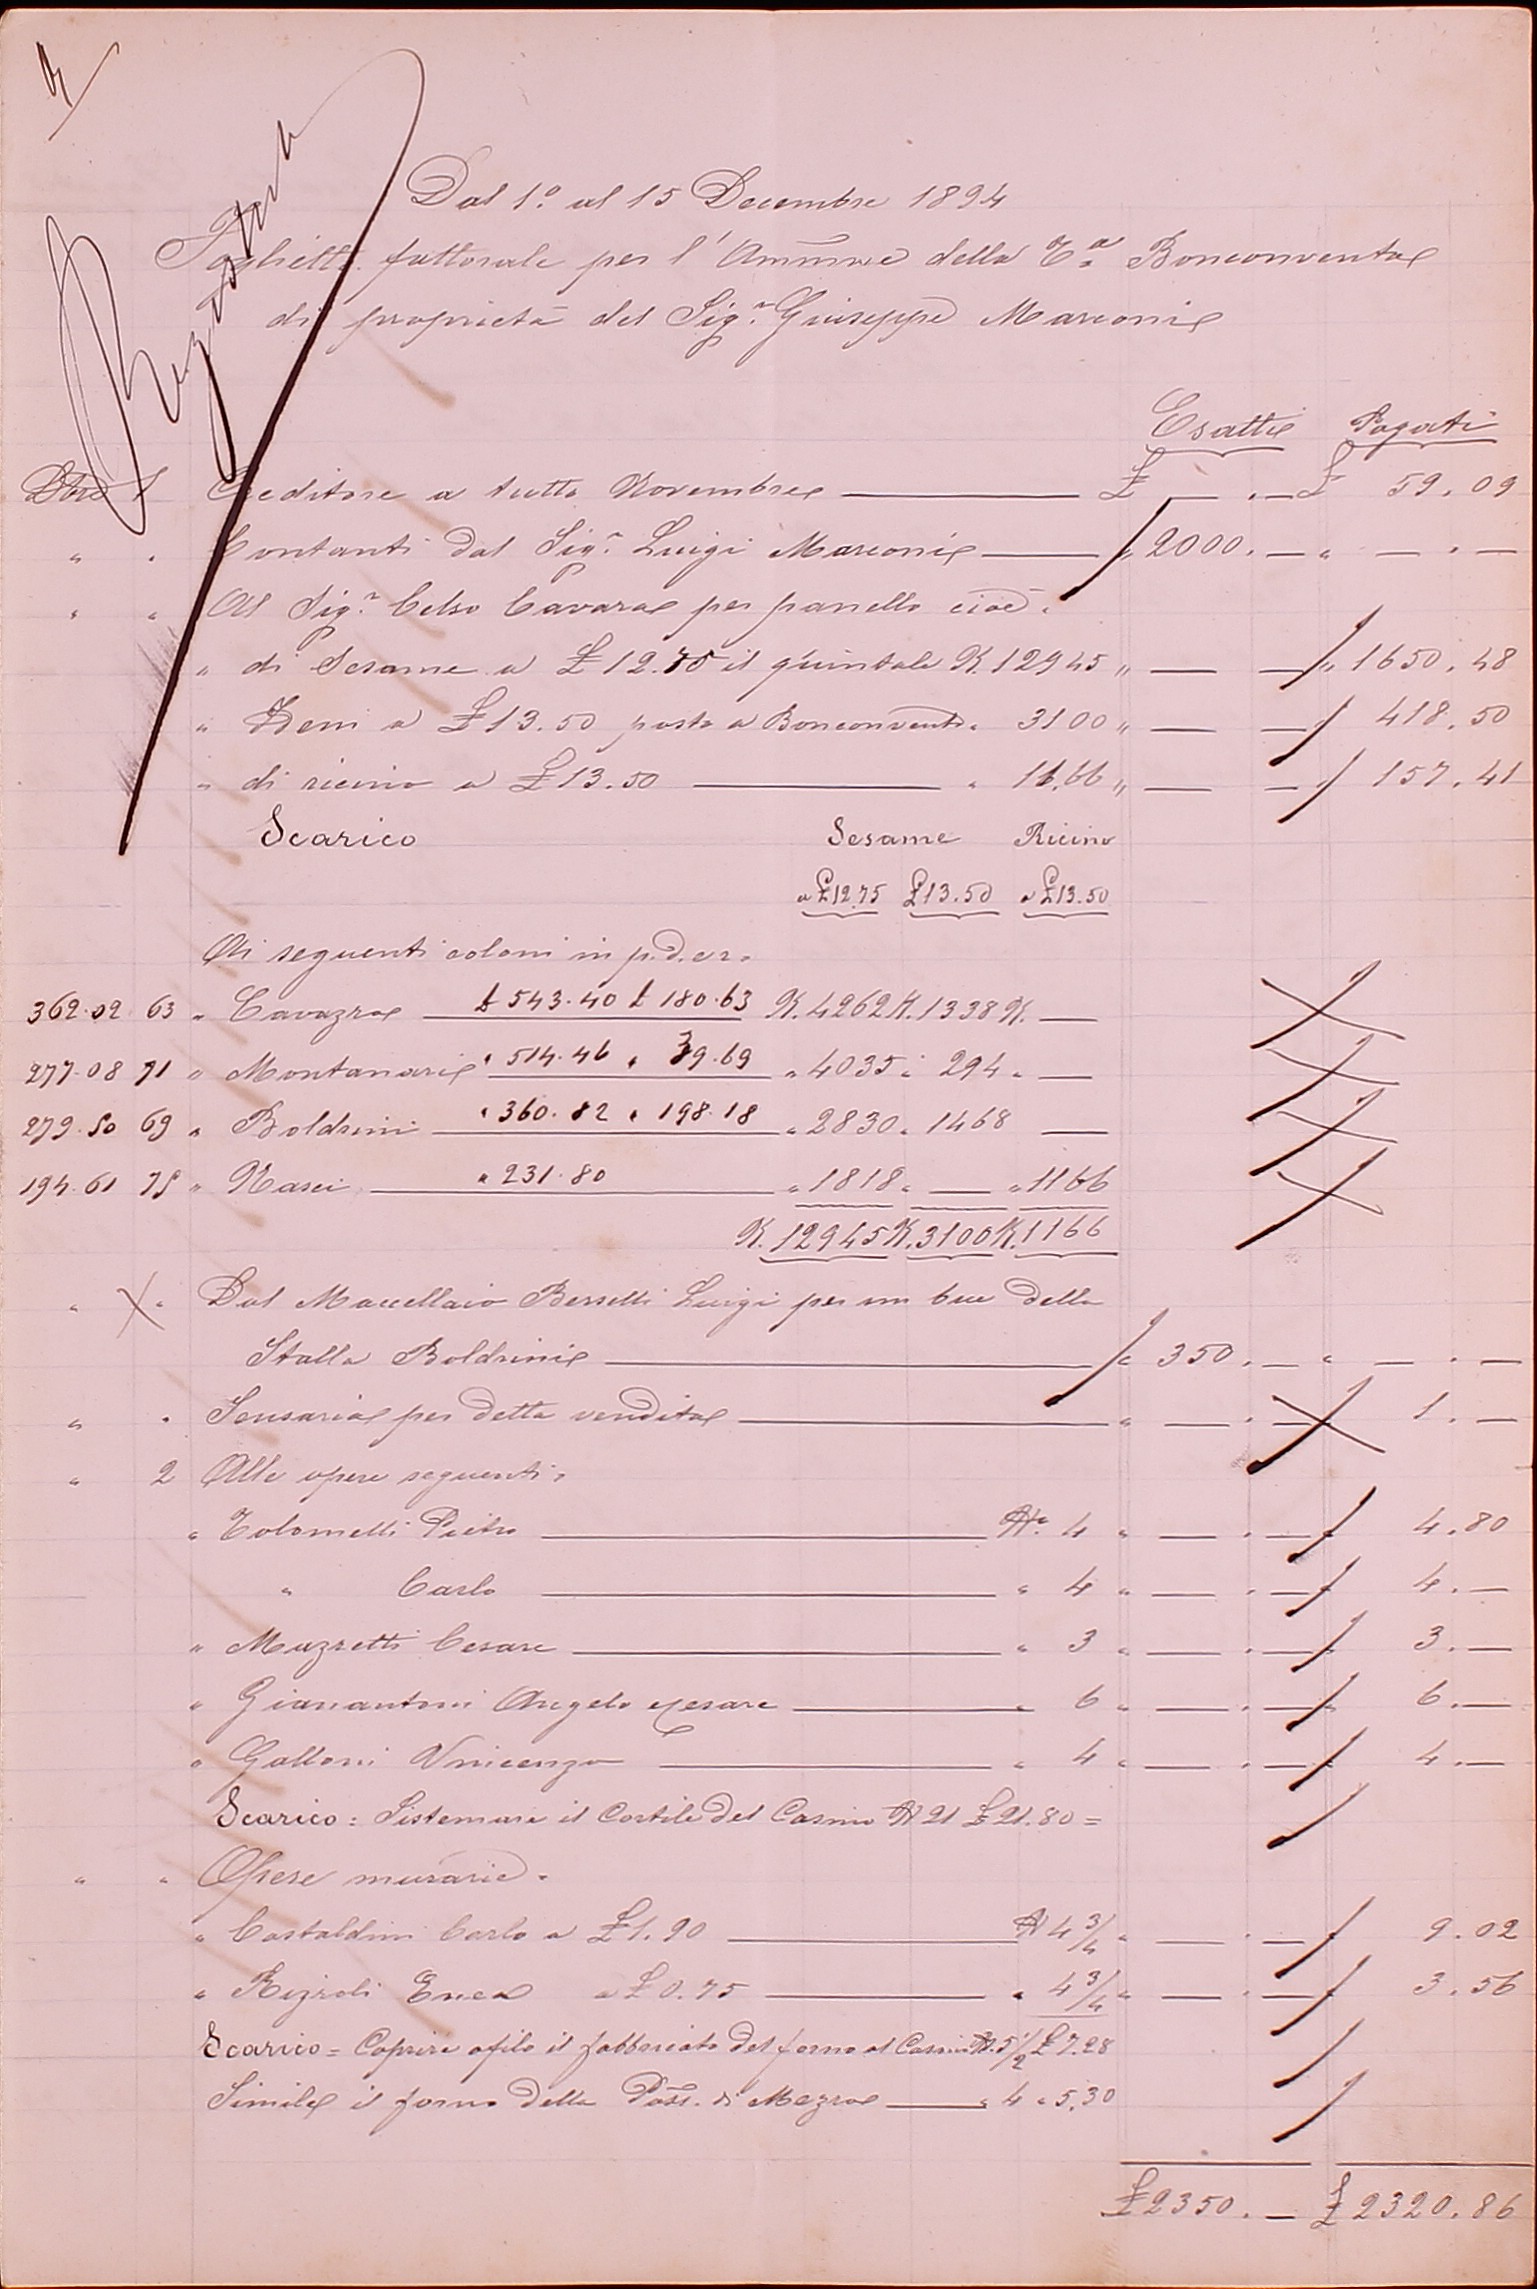 Registrato
Dal 1.º al 15 Decembre 1894
Foglietto fattorale per l'Ammne della T.a Bonconvento
di proprietà del Sig.r Giuseppe Marconi
Esatti Pagati
Xbre 1 Creditore a tutto Novembre £ — . — £ 59.09
" " Contanti dal Sig.r Luigi Marconi " 2000. — " — . —
" " Al Sig.r Celso Cavara per panello cioè.
" di Sesame a £ 12.75 il quintale K. 12945 " — — " 1650.48
" Idem a £ 13.50 posto a Bonconvento " 3100 " — — " 418.50
" di ricino a £ 13.50 " 11.66 " — — " 157.41
Scarico Sesame Ricino
a £12.75 £13.50 a £13.50
Ai seguenti coloni in
362.02 63 " Cavazza £ 543.40 £ 180.63 K. 4262 K. 1338 K. —
277.08 71 " Montanari " 514.46 " 39.69 " 4035 " 294 " —
279.50 69 " Boldrini " 360.82 " 198.18 " 2830 " 1468 —
194.61 75 " Nasci " 231.80 " 1818 " — " 1166
K. 12945 K. 3100 K. 1166
" " Dal Macellaio Berselli Luigi per un bue della
Stalla Boldrini " 350. — " — . —
" " Sensaria per detta vendita " — . — 1. —
" 2 Alle opere seguenti.
" Tolomelli Pietro N.º 4 " — . — " 4.80
" Carlo " 4 " — . — " 4. —
" Muzzetti Cesare " 3 " — . — " 3. —
" Gianantoni Angelo e Cesare " 6 " — . — " 6. —
" Galloni Vincenzo " 4 " — . — " 4. —
Scarico: Sistemare il Cortile del Casino N 21 £ 21.80 =
" " Opere murarie.
" Castaldini Carlo a £ 1.90 N 4 3/4 " — . — " 9.02
" Rizzoli Enea a £ 0.75 " 4 3/4 " — . — " 3.56
Scarico = Coprire afilo il fabbricato del forno al Casino N. 5 1/2 £ 7.28
Simile il forno della Poss. di Mezzo " 4 " 5.30
£ 2350. — £ 2320.86